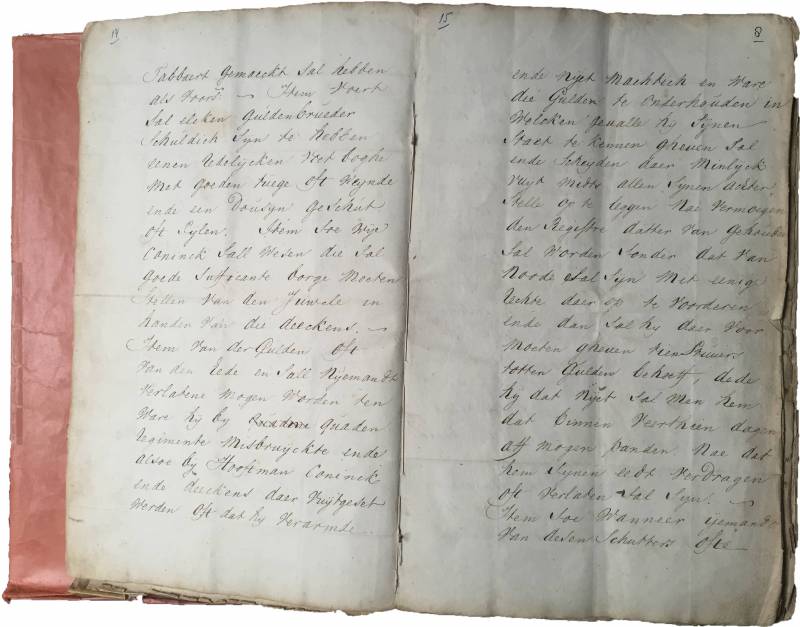 14
Tabbaert gemaeckt sal hebben
als voors: — Item voert
sal elcken guldenbrueder
schuldich syn te hebben
eenen redelycken voet boghe
met goeden tuege oft weynde
ende een dousyn geschut
oft pylen. Item soe wye
Coninck sall wesen die sal
goede suffocante borge moeten
stellen van den juwele in
handen van die deeckens. —
Item van der gulden oft
van den eede en sall nyemandt
verlatene mogen worden ten
ware hy by quaden
regimente misbruyckte ende
alsoe by Hooftman Coninck
ende deeckens daer vuytgeset
worden oft dat hy verarmde
15
8
ende nyet machtich en ware
die gulden te onderhouden in
welcken gevalle hy synen
staet te kennen gheven sal
ende scheyden daer minlyck
vuyt midts allen synen achter
stelle op te leggen nae vermoegen
den Registre datter van gehouden
sal worden sonder dat van
noode sal syn met eenig
rechte daer op te voorderen
ende dan sal hy daer voor
moeten gheven tien stuvers
totten gulden behoeff, dede
hy dat nyet sal men hem
dat binnen veerthien dagen
aff mogen panden. Nae dat
hem synen eedt verdragen
oft verlaten sal syn. —
Item soe wanneer yemandt
van desen schutters ofte